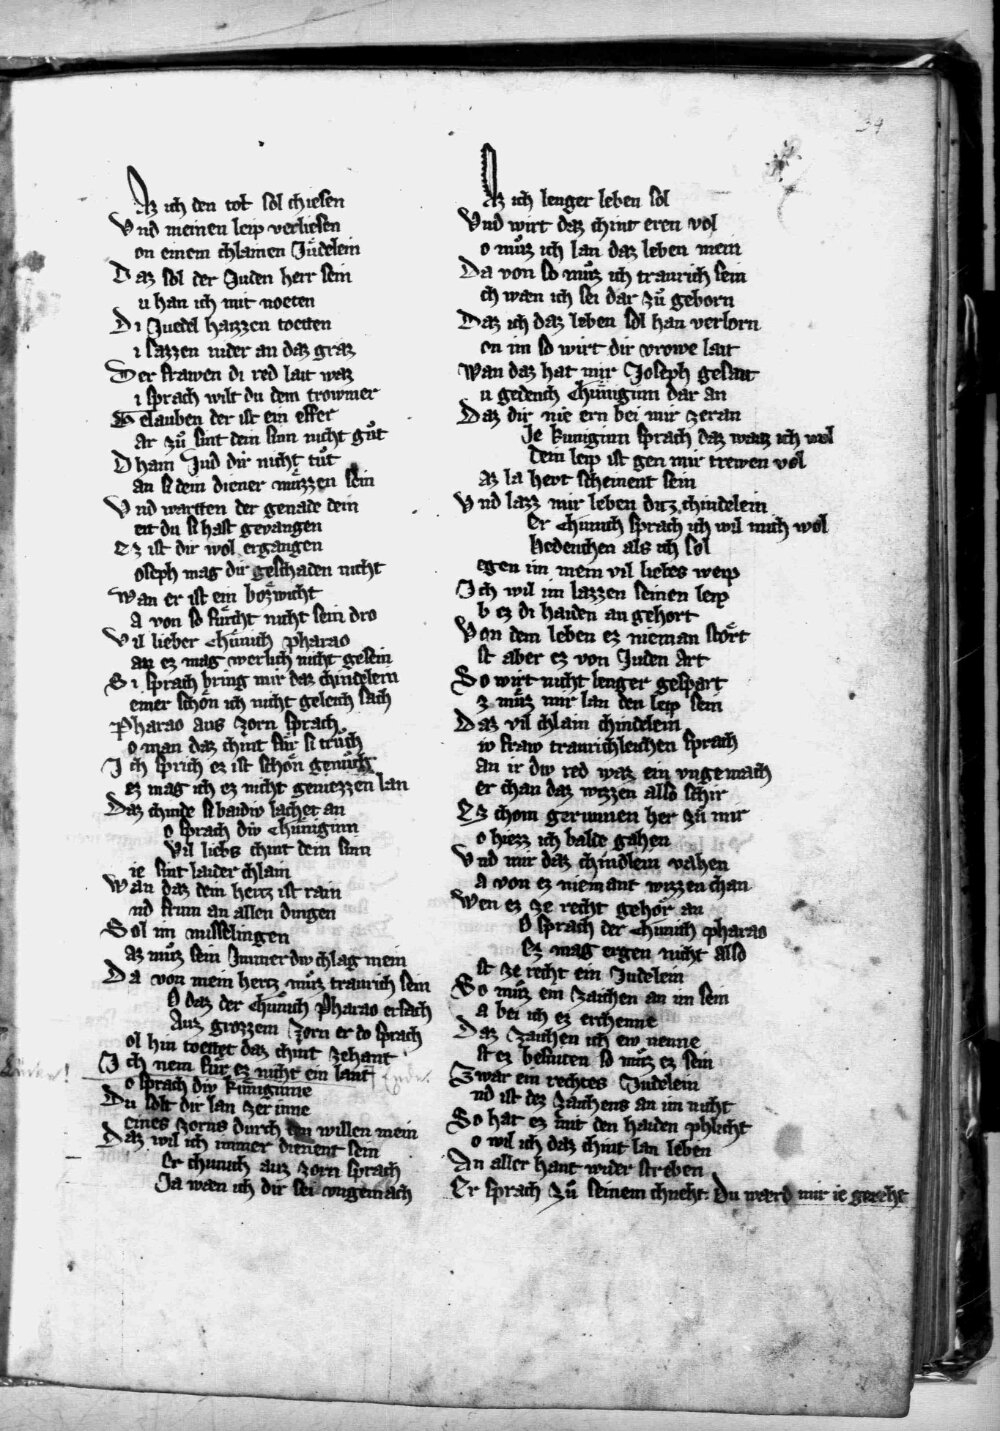 34
Az ich den tot sol chiesen
Vnd meinen leip verliesen
on einem chlainen Jüdelein
Daz sol der Juden herr sein
u han ich mit noeten
Di Juedel hazzen toetten
i sazzen nider an daz graz
Der frawen di red lait waz
i sprach wilt du dem trowmer
Gelauben der ist ein effer
ar zů sint dein sinn nicht gůt
Dhain Jud dir nicht tůt
an si dem diener müzzen sein
Vnd wartten der genade dein
eit du si hast gevangen
Ez ist dir wol ergangen
oseph mag dir geschaden nicht
Wan er ist ein bözwicht
a von so fürcht nicht sein dro
Vil lieber Chünich pharao
an ez mag werlich nicht gesein
Si sprach bring mir daz chindelein
einer schön ich nicht geleich sach
Pharao aus zorn sprach
o man daz chint für si trůch
Ich sprich ez ist schön genůch
ez mag ich ez nicht geniezzen lan
Daz chinde si baidiv lachet an
o sprach div Chüniginn
Vil liebs chint dein sinn
ie sint laider chlain
Wan daz dein hertz ist rain
nd frum an allen dingen
Sol im misselingen
az můz sein Immer div chlag mein
Da von mein hertz můz traurich sein
O daz der Chünich Pharao ersach
Auz grozzem zorn er do sprach
ol hin toettet daz chint zehant
Ich nem für ez nicht ein lant
o sprach div küniginne
Du solt dir lan zerinne
eines zorns durch den willen mein
Daz wil ich immer dienent sein
Er chunich auz zorn sprach
Ja waen ich dir sei vngemach
Az ich lenger leben sol
Vnd wirt daz chint eren vol
o můz ich lan daz leben mein
Da von so můz ich traurich sein
ch waen ich sei dar zů geborn
Daz ich daz leben sol han verlorn
on im so wirt dir vrowe lait
Wan daz hat mir Joseph gesait
u gedench Chüniginn dar an
Daz dir nie ern bei mir zeran
Je kuniginn sprach daz waiz ich wol
Dein leip ist gen mir trewen vol
az la hevt scheinent sein
Vnd lazz mir leben ditz chindelein
Er Chünich sprach ich wil mich wol
Bedenchen als ich sol
egen im mein vil liebes weip
Ich wil im lazzen seinen leip
b ez di haiden an gehort
Von dem leben ez nieman stört
st aber ez von Juden art
So wirt nicht lenger gespart
z můz mir lan den leip sein
Daz vil chlain chindelein
iv fraw traurichleichen sprach
an ir div red waz ein vngemach
er chan daz wizzen also schir
Ez chom gerunnen her zů mir
o hiezz ich balde gahen
Vnd mir daz chindlein vahen
a von ez niemant wizzen chan
Wen ez ze recht gehör an
O sprach der Chünich pharao
Ez mag ergen nicht also
st ze recht ein Judelein
So můz ein zaichen an im sein
a bei ich ez erchenne
Daz zaichen ich ew nenne
st ez besniten so můz ez sein
Zwar ein rechtes Judelein
nd ist dez zaichens an im nicht
So hat ez mit den haiden phlicht
o wil ich daz chint lan leben
An aller hant wider streben
Er sprach zů seinem chneht. Du waerd mir ie gereht